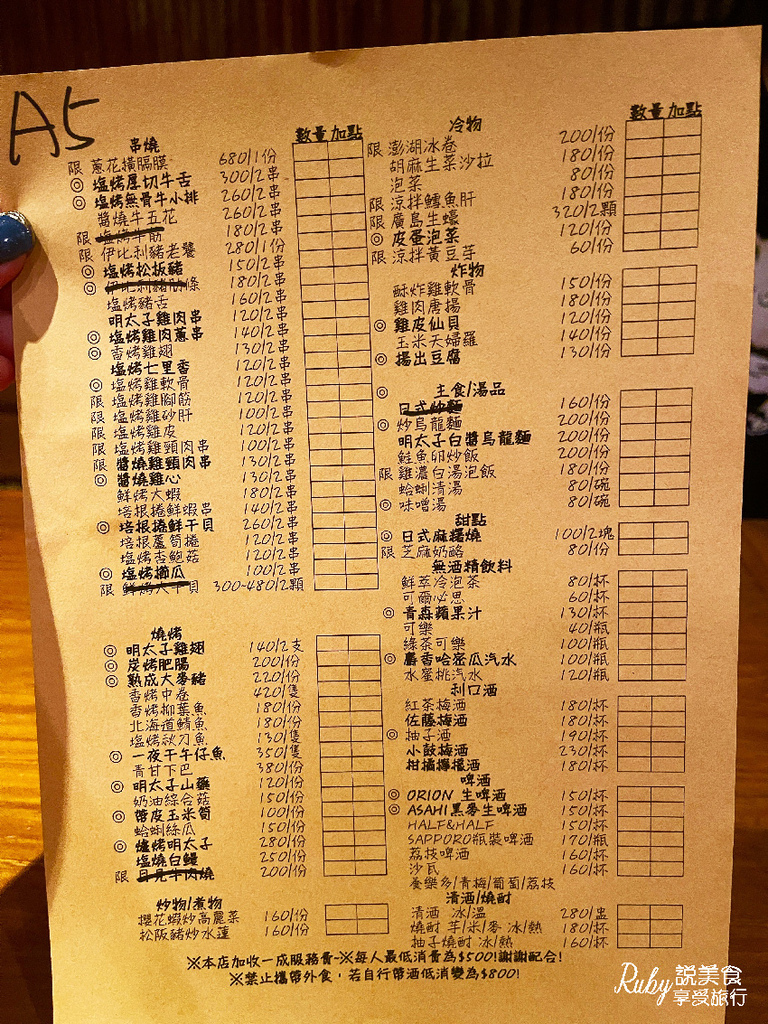 A5
串燒 數量 加點
限 蔥花橫膈膜 680/1份
◎ 塩烤厚切牛舌 300/2串
◎ 塩烤無骨牛小排 260/2串
醬燒牛五花 260/2串
限 塩烤牛筋 180/2串
限 伊比利豬老饕 280/1份
◎ 塩烤松板豬 150/2串
◎ 伊比利豬肋條 180/2串
塩烤豬舌 160/2串
明太子雞肉串 120/2串
◎ 塩烤雞肉蔥串 140/2串
◎ 香烤雞翅 130/2串
塩烤七里香 120/2串
◎ 塩烤雞軟骨 120/2串
限 塩烤雞腳筋 120/2串
限 塩烤雞砂肝 100/2串
限 塩烤雞皮 120/2串
限 塩烤雞頸肉串 100/2串
限 醬燒雞頸肉串 130/2串
◎ 醬燒雞心 130/2串
鮮烤大蝦 180/2串
培根捲鮮蝦串 140/2串
◎ 培根捲鮮干貝 260/2串
培根蘆筍捲 120/2串
塩烤杏鮑菇 120/2串
◎ 塩烤櫛瓜 100/2串
限 鮮烤大干貝 300~480/2顆
燒烤
◎ 明太子雞翅 140/2支
◎ 炭烤肥腸 200/份
◎ 熟成大麥豬 220/份
香烤中卷 420/隻
香烤柳葉魚 180/份
北海道鯖魚 180/份
塩烤秋刀魚 130/隻
◎ 一夜干午仔魚 350/隻
青甘下巴 380/份
◎ 明太子山藥 120/份
奶油綜合菇 150/份
◎ 帶皮玉米筍 100/份
蛤蜊絲瓜 150/份
◎ 爐烤明太子 280/份
塩燒白鰻 250/份
限 月見牛肉燒 200/份
炒物/煮物
櫻花蝦炒高麗菜 160/份
松阪豬炒水蓮 160/份
冷物 數量 加點
限 澎湖冰卷 200/份
胡麻生菜沙拉 180/份
泡菜 80/份
限 涼拌鱈魚肝 180/份
限 廣島生蠔 320/2顆
◎ 皮蛋泡菜 120/份
限 涼拌黃豆芽 60/份
炸物
酥炸雞軟骨 150/份
雞肉唐揚 180/份
◎ 雞皮仙貝 120/份
玉米天婦羅 140/份
◎ 揚出豆腐 130/份
主食/湯品
◎ 日式炒麵 160/份
◎ 炒烏龍麵 200/份
明太子白醬烏龍麵 200/份
鮭魚卵炒飯 200/份
限 雞濃白湯泡飯 180/份
蛤蜊清湯 80/碗
◎ 味噌湯 80/碗
甜點
◎ 日式麻糬燒 100/2塊
限 芝麻奶酪 80/份
無酒精飲料
鮮萃冷泡茶 80/杯
可爾必思 60/杯
◎ 青森蘋果汁 130/杯
可樂 40/瓶
綠茶可樂 100/瓶
◎ 麝香哈密瓜汽水 100/瓶
水蜜桃汽水 120/瓶
利口酒
紅茶梅酒 180/杯
佐藤梅酒 180/杯
◎ 柚子酒 190/杯
小鼓梅酒 230/杯
柑橘檸檬酒 180/杯
啤酒
◎ ORION 生啤酒 150/杯
◎ ASAHI黑麥生啤酒 150/杯
HALF&HALF 150/杯
SAPPORO瓶裝啤酒 170/瓶
荔枝啤酒 160/杯
沙瓦 160/杯
養樂多/青梅/葡萄/荔枝
清酒/燒酎
清酒 冰/溫 280/盅
燒酎 芋/米/麥 冰/熱 180/杯
柚子燒酎 冰/熱 160/杯
※本店加收一成服務費~※每人最低消費為$500!謝謝配合!
※禁止攜帶外食，若自行帶酒低消變為$800!
Ruby說美食
享受旅行